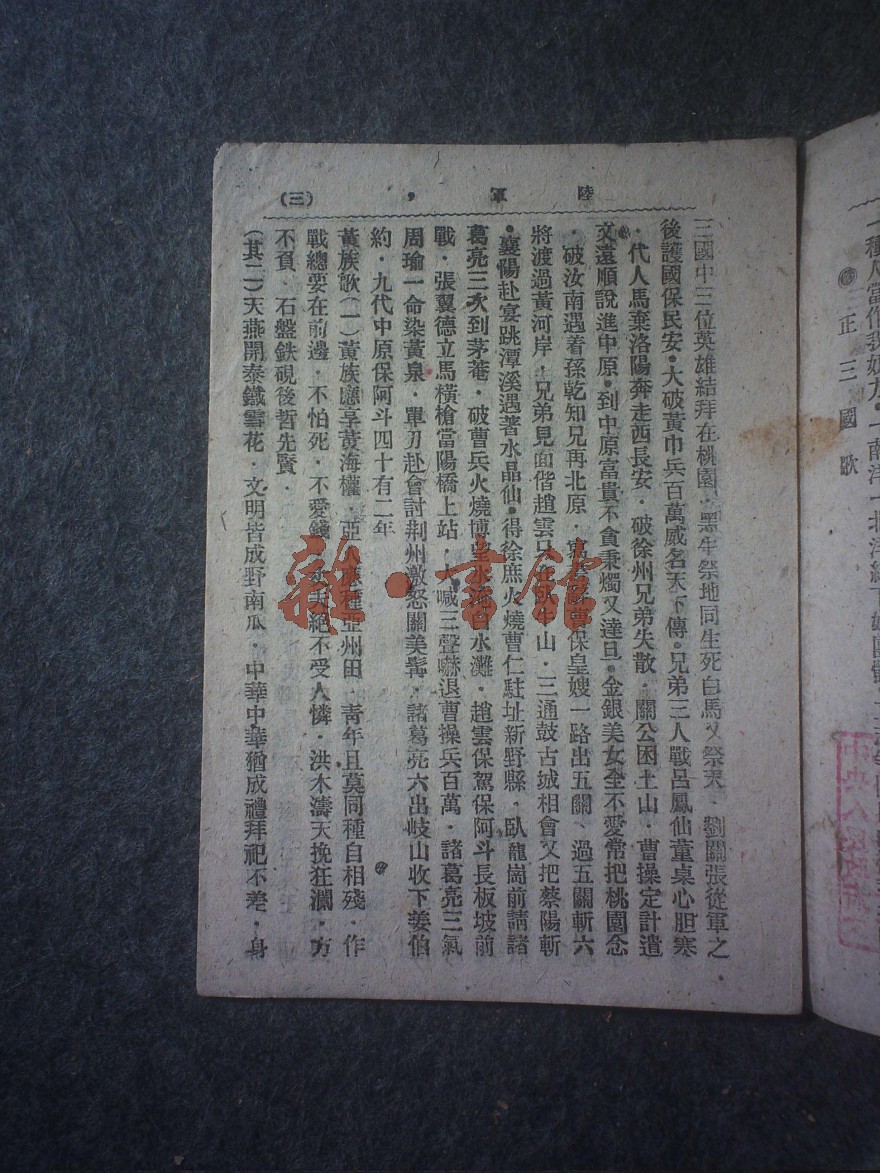 陸軍，（三）
三國中三位英雄結拜在桃園．黑牛祭地同生死白馬又祭天．劉關張從軍之
後護國保民安．大破黃巾兵百萬威名天下傳．兄弟三人戰呂鳳仙董桌心胆寒
．代人馬棄洛陽奔走西長安．破徐州兄弟失散．關公困土山．曹操定計遣
文遠順說進中原．到中原富貴不貪秉燭又達旦．金銀美女全不愛常把桃園念
．破汝南遇着孫乾知兄再北原．保皇嫂一路出五關．過五關斬六
將渡過黃河岸．兄弟見面偕趙雲只牛山．三通鼓古城相會又把蔡陽斬
．襄陽赴宴跳潭溪遇著水晶仙．得徐庶火燒曹仁駐址新野縣．臥龍崗前請諸
葛亮三次到茅菴．破曹兵火燒博望水淹白水灘．趙雲保駕保阿斗長板坡前
戰．張翼德立馬橫槍當陽橋上站．大喊三聲嚇退曹操兵百萬．諸葛亮三氣
周瑜一命染黃泉．單刀赴會討荆州激怒關美髯．諸葛亮六出岐山收下姜伯
約．九代中原保阿斗四十有二年
黃族歌（一）黃族應享黃海權．亞人應種亞州田．靑年且莫同種自相殘．作
戰總要在前邊．不怕死．不愛錢．丈夫絕不受人憐．洪木濤天挽狂瀾．方
不負．石盤鉄硯後哲先賢．
（其二）天燕開泰鐵雲花．文明皆成野南瓜．中華中華猶成禮拜祀不差．身
正三國歌
雜·書館